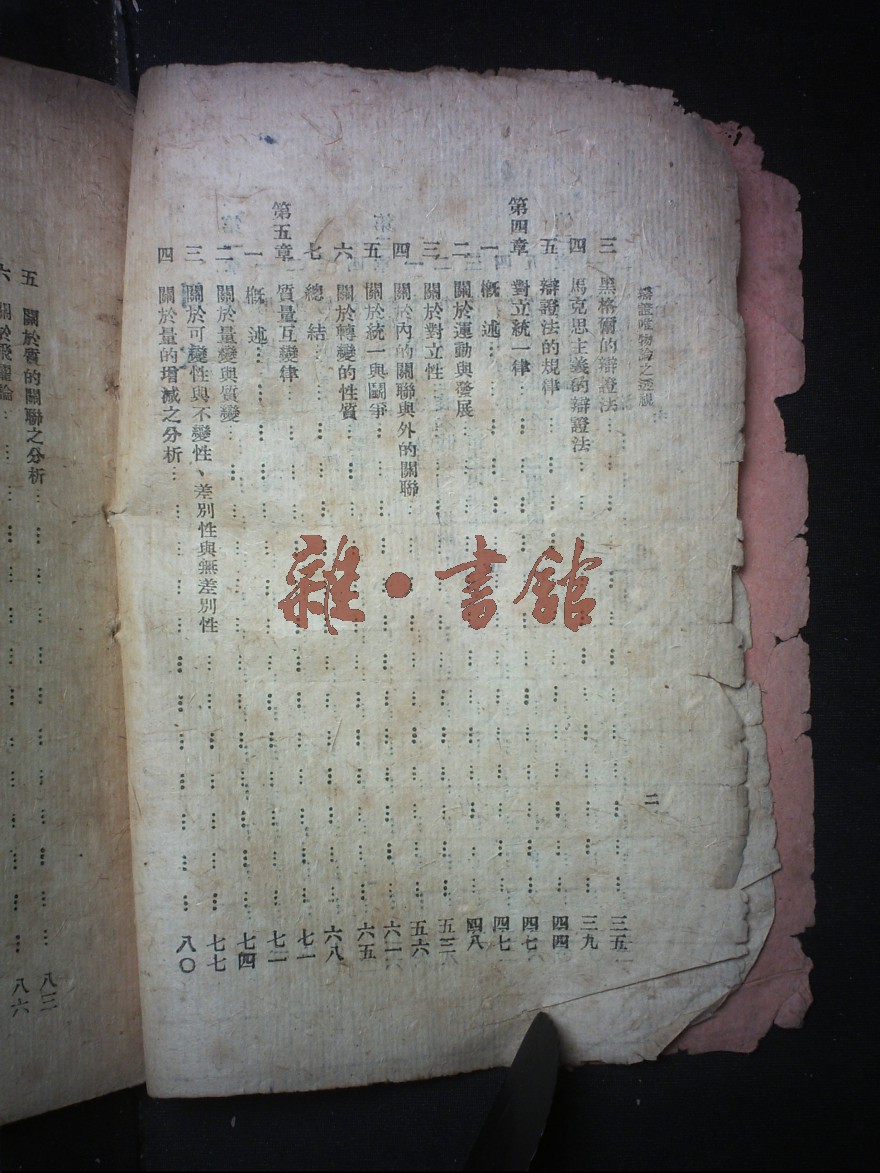 辯證唯物論之透視
二
三 黑格爾的辯證法……三五
四 馬克思主義的辯證法……三九
五 辯證法的規律……四四
第四章 對立統一律……四七
一 概述……四七
二 關於運動與發展……四八
三 關於對立性……五三
四 關於內的關聯與外的關聯……五六
五 關於統一與鬭爭……六一
六 關於轉變的性質……六五
七 總結……六八
第五章 質量互變律……七一
一 概述……七二
二 關於量變與質變……七四
三 關於可變性與不變性、差別性與無差別性……七七
四 關於量的增減之分析……八〇
五 關於質的關聯之分析……八三
六 關於飛躍論……八六
雜·書館